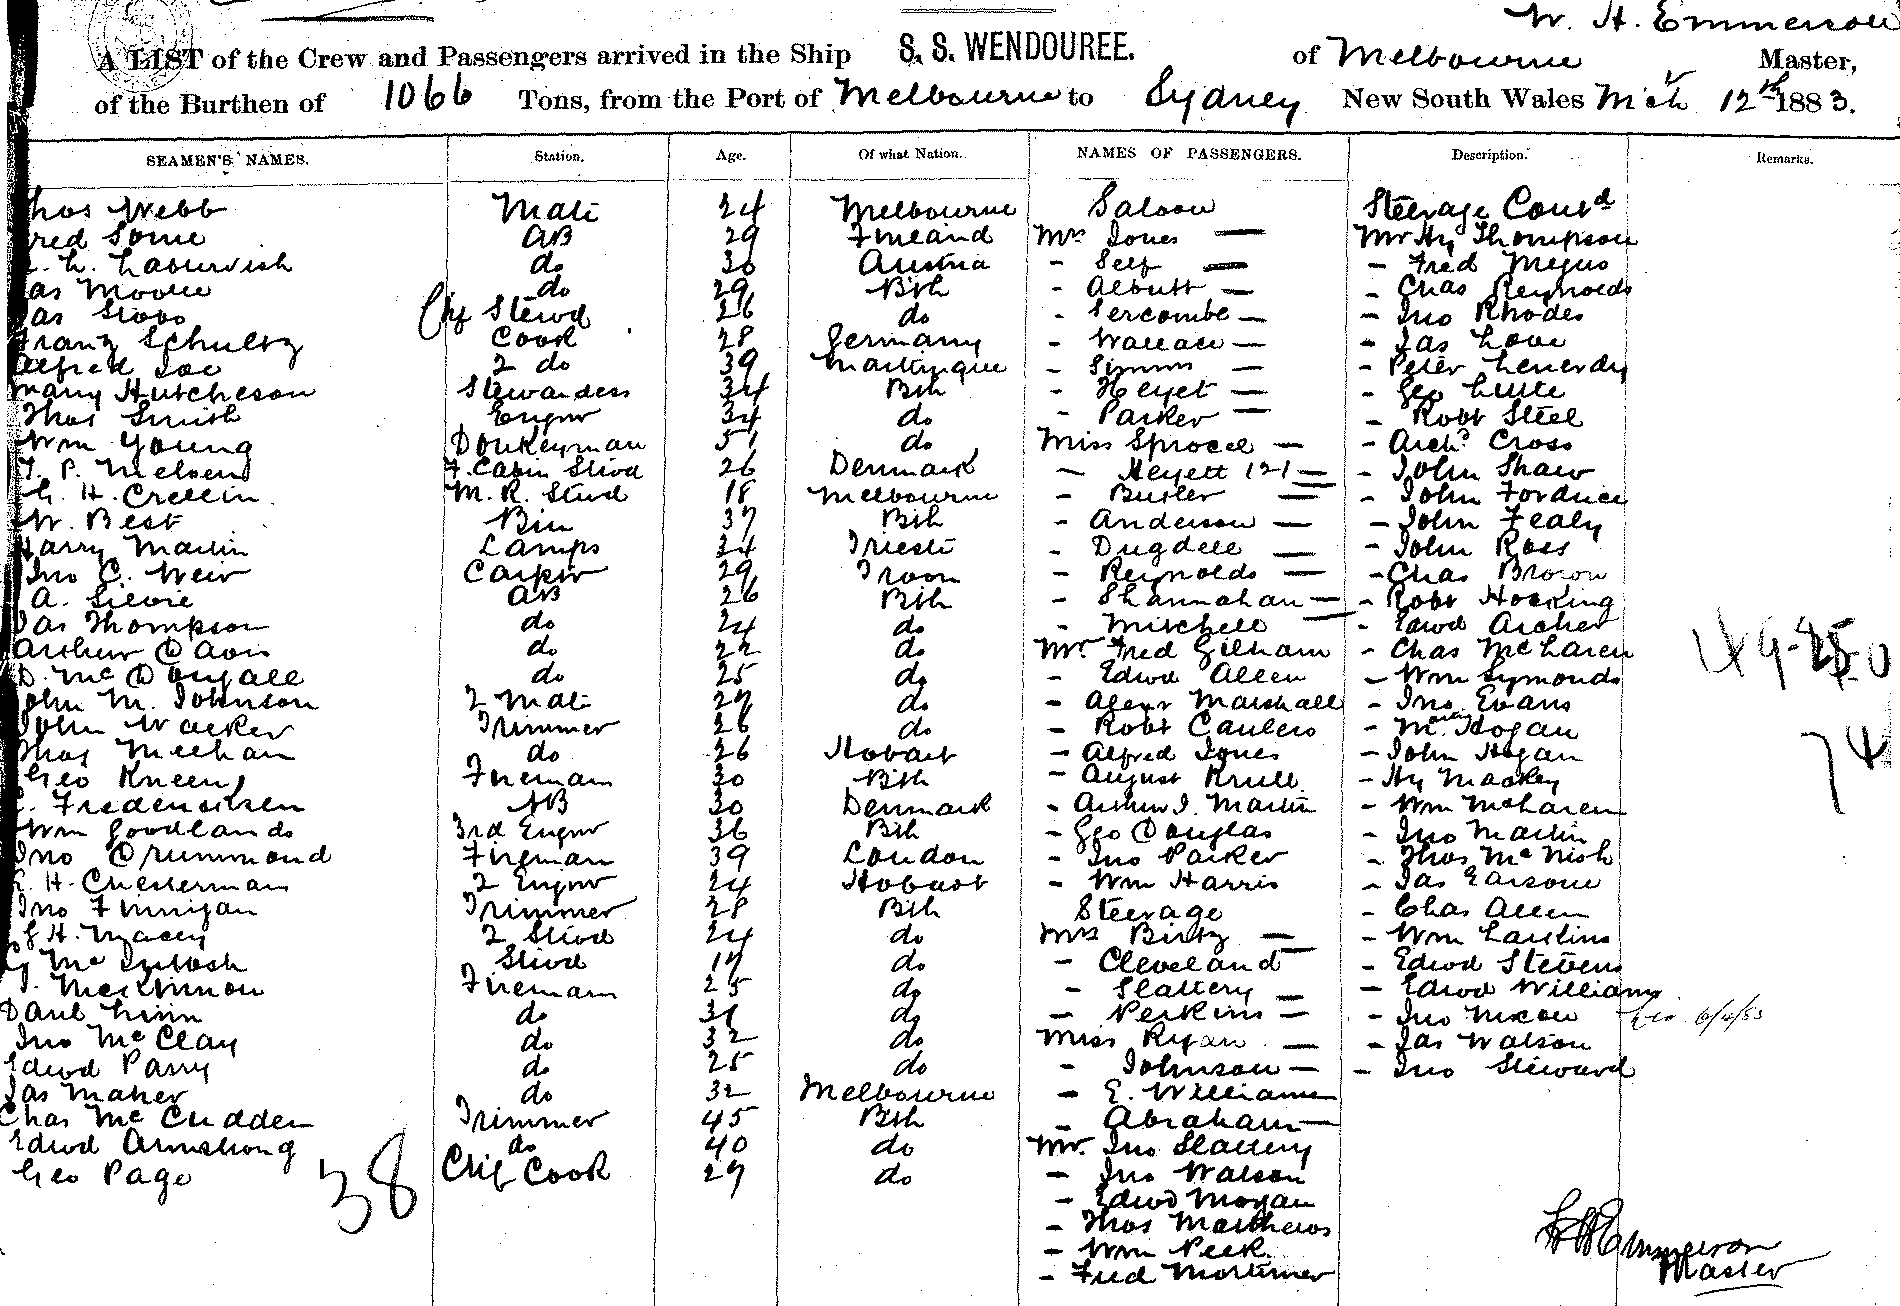 W. H. Emmerson
A LIST of the Crew and Passengers arrived in the Ship S. S. WENDOUREE. of Melbourne Master,
of the Burthen of 1066 Tons, from the Port of Melbourne to Sydney New South Wales Mch 12th 1883.
SEAMEN'S NAMES. Station. Age. Of what Nation. NAMES OF PASSENGERS. Description. Remarks.
hos Webb Mate 24 Melbourne Saloon Steerage Contd
red Some AB 29 Finland Mrs Jones — Mr Hy Thompson
do 30 Austria - Self — - Fred
as Moore do 29 Bth - Albutt — - Chas Reynolds
as Chf Stewd 26 do - Sercombe — - Jno Rhodes
Franz Schultz Cook 28 Germany - Wallace — - Jas Love
Alfred 2 do 39 Martinque - Simms — - Peter
Mary Hutcheson Stewardess 34 Bth - Heyet — - Geo Little
Thos Smith Engnr 34 do - Parker — - Robt Steel
Wm Young Donkeyman do Miss — - Archd Cross
P. Nielsen F. Cabin Stwd 26 Denmark - Heyett — - John Shaw
H. Crellin M. R. Stwd 18 Melbourne - Butler — - John Fordrice
W. Best 37 Bth - Anderson — - John Fealy
Harry Martin Lamps 34 Trieste - Dugdele — - John Ross
Jno C. Weir Carpnr 29 Troon - Reynolds — - Chas Brown
A. Silvie AB 26 Bth - Shannahan — - Robt Hocking
Jas Thompson do 24 do - Mitchell — - Edwd Archer
Arthur Davis do 22 do Mr. Fred Gilham - Chas McLaren 49-
D. McDougall do 25 do - Edwd Allen - Wm Symonds
John M. Johnson 2 Mate 29 do - Alexr Marshall - Jno Evans
John Walker Trimmer 26 do - Robt - Hogan
Thos Meehan do 26 Hobart - Alfred Jones - John Hogan 74
Geo Kneen Fireman 30 Bth - August Krull - Hy Mackey
Fredensiksen AB 30 Denmark - Arthur J. Martin - Wm McLaren
Wm Goodlands 3rd Engnr 36 Bth - Geo Douglas - Jno Martin
Jno Drummond Fireman 39 London - Jno Parker - Thos McNish
H. Chesterman 2 Engnr 24 Hobart - Wm Harris - Jas
Jno Finnigan Trimmer 28 Bth Steerage - Chas Allen
H. Macey 2 Stwd 24 do Mrs — - Wm
McIntosh Stwd 17 do - Cleveland - Edwd Stevens
McKinnon Fireman 25 do - Slattery — - Edwd Williams
Danl Linn do do - Perkins — - Jno Nixon
Jno McClay do 32 do Miss Ryan — - Jas Watson
Edwd Parry do 25 do - Johnson — - Jno Steward
Jas Maher do 32 Melbourne - E. Williams
Chas McCudden Trimmer 45 Bth - Abraham —
Edwd Armstrong do 40 do Mr. Jno Slattery
Geo Page Chf Cook 29 do - Jno Watson
38
- Edwd Morgan
- Thos Matthews
- Wm Peek
- Fred Mortimer
Emmerson
Master